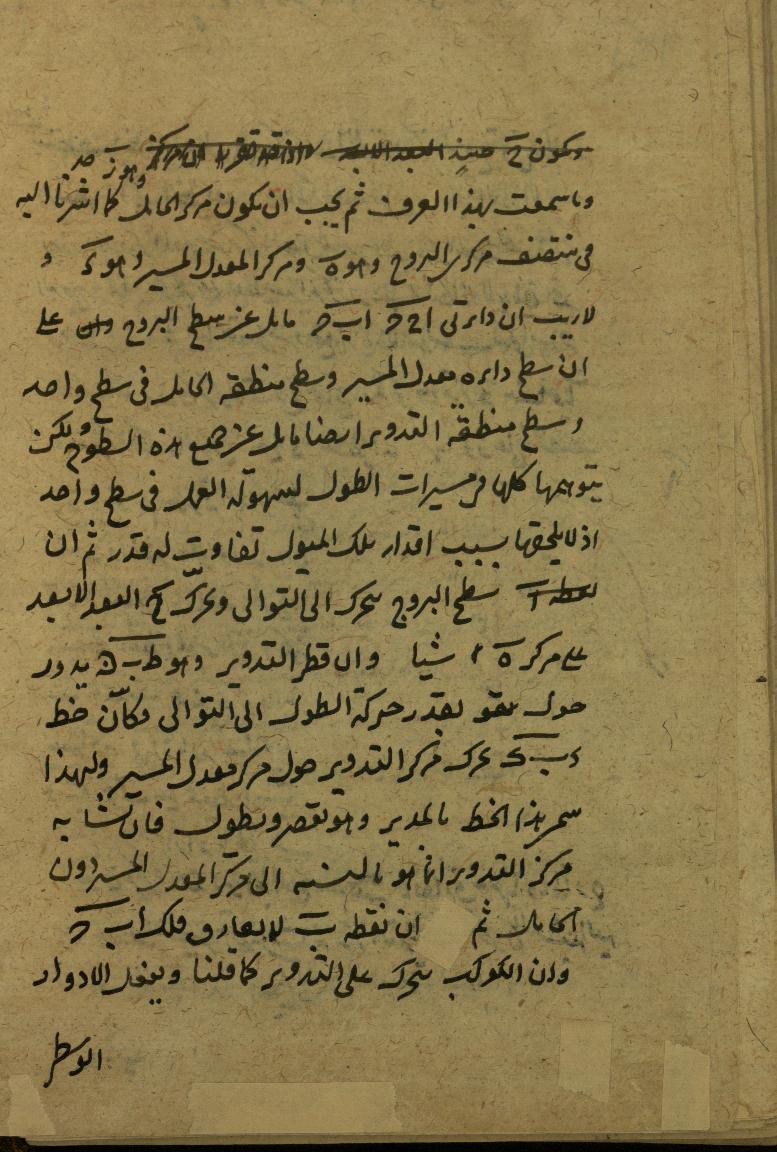 ويكون ح حينئذ البعد الابعد
وهو ز صد
وما سمعت بهذا العرف ثم يجب ان يكون مركز الحامل كما اشرنا اليه
في منتصف مركزى البروج وهو ه ومركز المعدل المسير وهو ء و
لاريب ان دائرتى اح ك اب ك مايل عن سطح البروج وان على
ان سطح دائره معدل المسير وسطح منطقه الحامل فى سطح واحد
وسطح منطقة التدوير ايضا مايل عن جميع هذه السطوح ولكن
يتوهمها كلها فى مسيرات الطول لسهولة العمل فى سطح واحد
اذ لا يلحقها بسبب اقدار تلك الميول تفاوت له قدر ثم ان
نقطة ا سطح البروج يتحرك الى التوالى ويحرك ح البعد الابعد
على مركز ه شيا وان قطر التدوير وهو ط ب ه يدور
حول بقدر حركة الطول الى التوالى وكأن خط
ء ب ك يحرك مركز التدوير حول مركز معدل المسير ولهذا
سمى هذا الخط بالمدير وهو يقصر ويطول فان تشابه
مركز التدوير انما هو بالنسبه الى مركز المعدل المسير دون
الحامل ثم ان نقطه ب لا يفارق فلك اب ك
وان الكوكب يتحرك على التدوير كما قلنا ويفعل الادوار
الوسطى